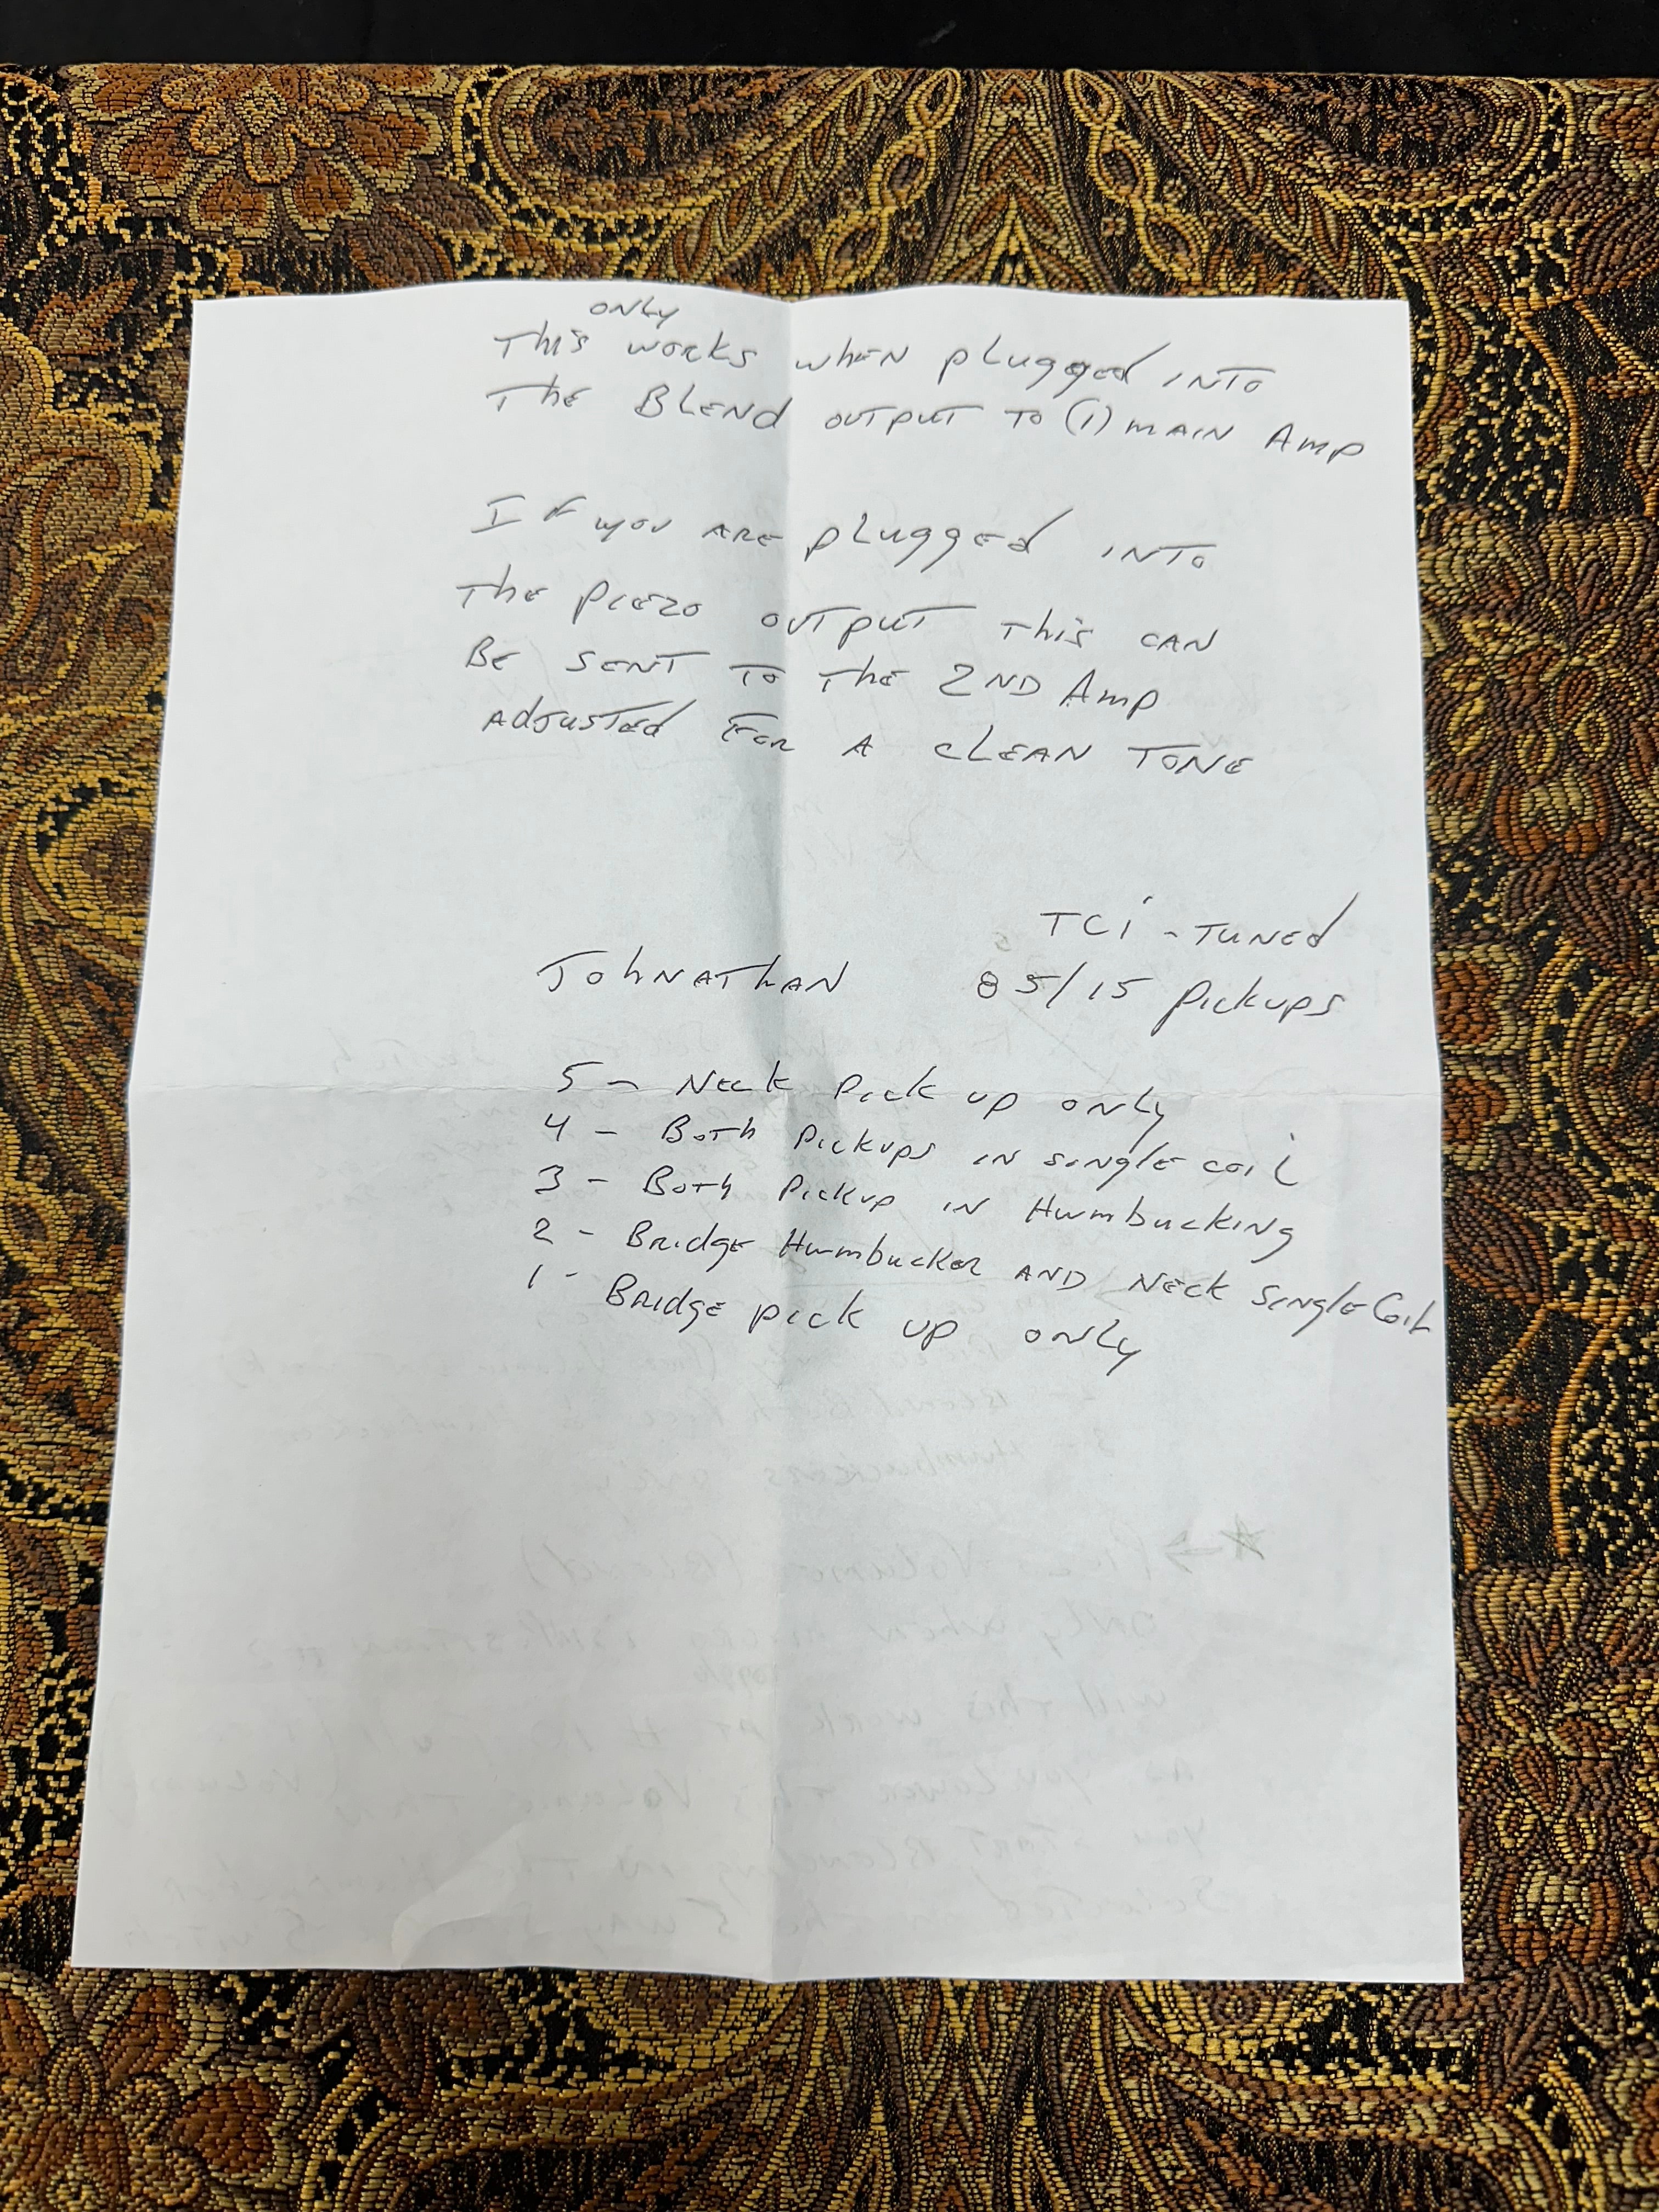 only
This works when plugged into
The Blend output to (1) main Amp
If you are plugged into
The piezo output this can
Be sent to the 2nd Amp
Adjusted For a clean Tone
TCi - Tuned
Johnathan 85/15 pickups
5 - Neck Pick up only
4 - Both Pickups in single coil
3 - Both Pickup in Humbucking
2 - Bridge Humbucker and Neck Single Coil
1 - Bridge pick up only